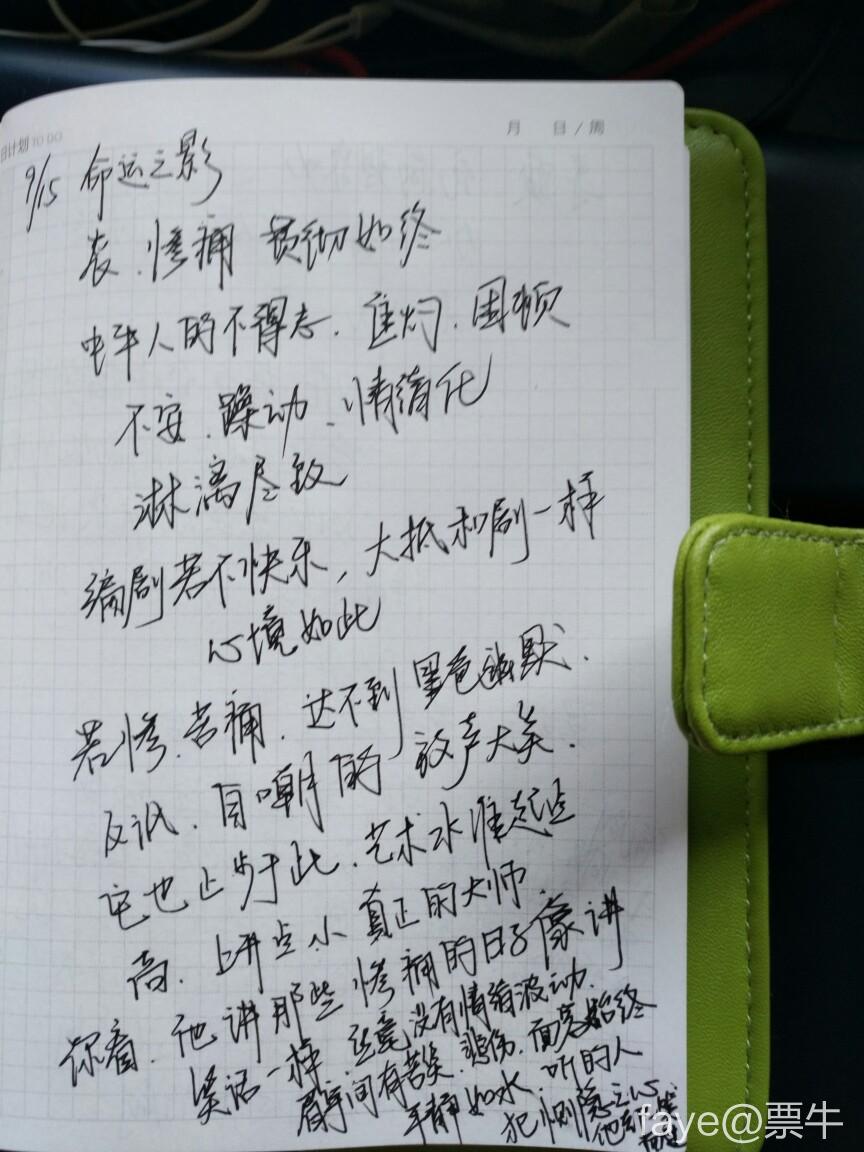 日计划 TO DO
月 日/周
9/15 命运之影
衰、惨痛 贯彻如终
中年人的不得志、焦灼、困顿
不安、躁动、情绪化
淋漓尽致
编剧若不快乐,大抵和剧一样
心境如此
若惨、苦痛、达不到黑色幽默、
反讽、自嘲的 放声大笑、
它也止步于此、艺术水准起点
高、上升点小 真正的大师、
你看、他讲那些惨痛的日子像讲
笑话一样 竟没有情绪波动、
眉宇间有苦笑、悲伤、面容始终
平静如水、听的人
犯恻隐之心
他却
faye@票牛